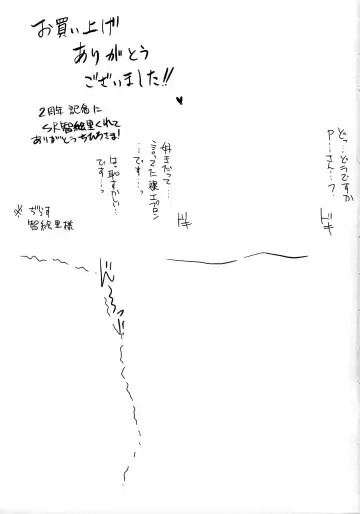 お買い上げ
ありがとう
ございました!!
♥
2周年記念に
SR智絵里くれて
ありがとうちひろさま!
どっ…どうですか
P…さん…?
ドキ
ドキ
好きだって…
言ってた裸エプロン
…です…っ
は、恥ずかしい…
です…っ
※ぢらす
智絵里様